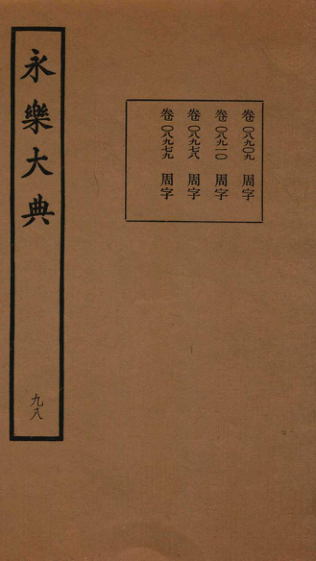 永樂大典
九八
卷〇八九〇九 周字
卷〇八九一〇 周字
卷〇八九七八 周字
卷〇八九七九 周字